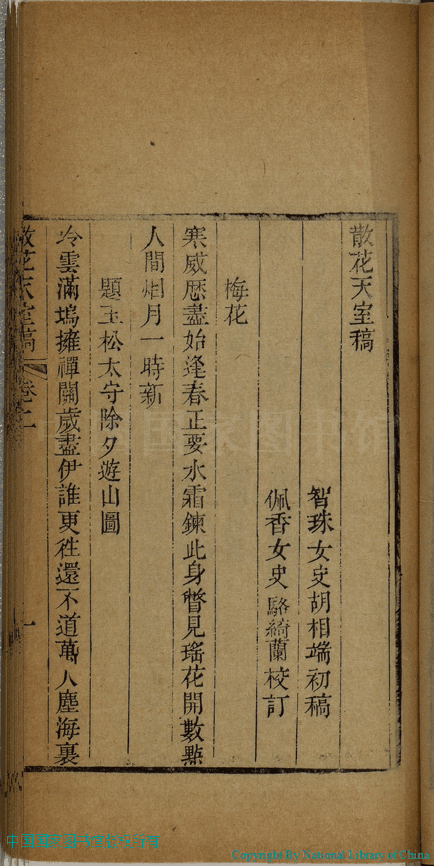 散花天室稿
智珠女史胡相端初稿
佩香女史駱綺蘭校訂
梅花
寒威歷盡始逢春正要水霜鍊此身瞥見瑤花開數點
人間烟月一時新
題玉松太守除夕遊山圖
冷雲滿塢擁禪關歲盡伊誰更往還不道萬人塵海裏
散花天室稿 卷二 一
中国国家图书馆
Copyright By National Library of China